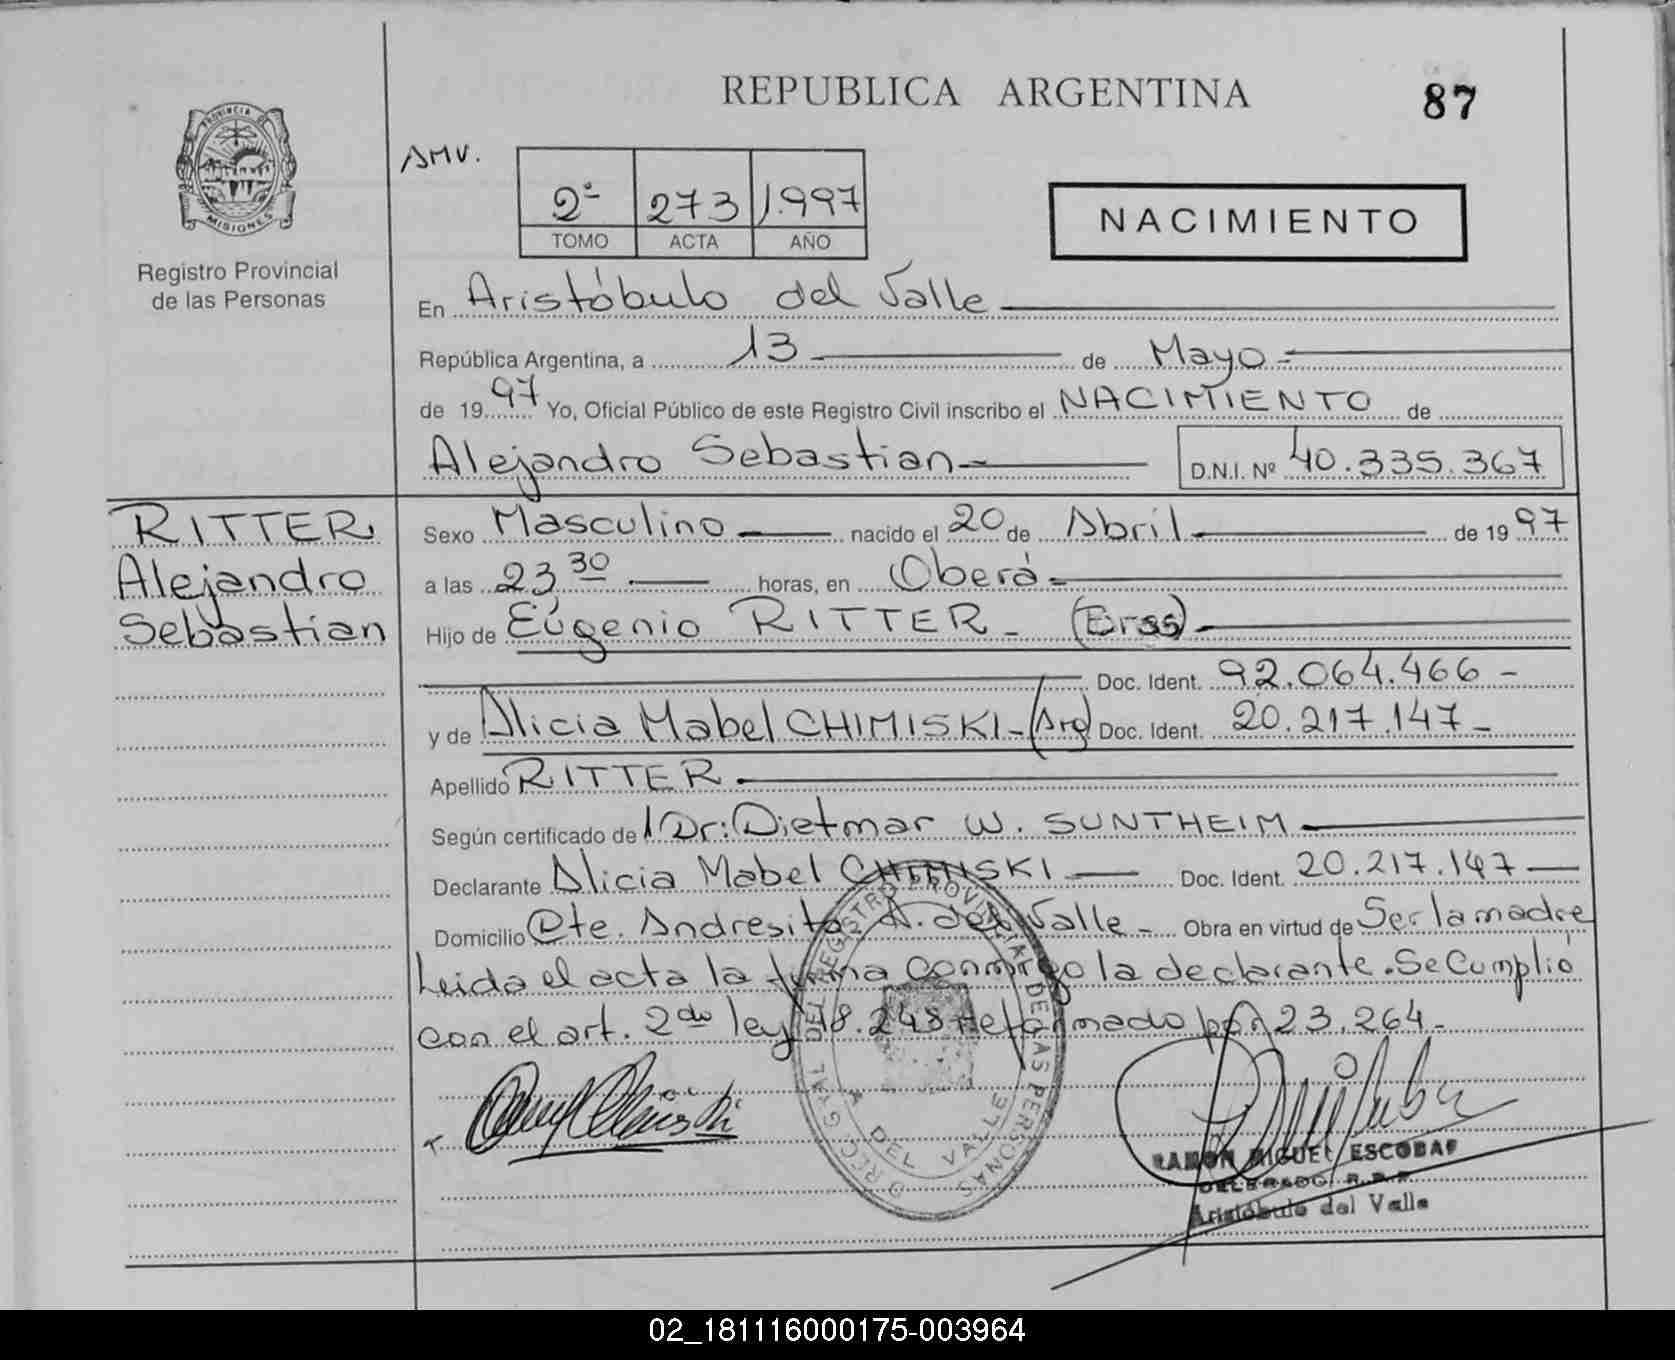 REPUBLICA ARGENTINA
87
PROVINCIA DE
MISIONES
Registro Provincial
de las Personas
AMV.
2ª 273 1.997
TOMO ACTA AÑO
NACIMIENTO
En Aristóbulo del Valle
República Argentina, a 13 de Mayo
de 1997 Yo, Oficial Público de este Registro Civil inscribo el NACIMIENTO de
Alejandro Sebastian D.N.I. Nº 40.335.367
RITTER
Alejandro
Sebastian
Sexo Masculino nacido el 20 de Abril de 1997
a las 23 30 horas, en Oberá
Hijo de Eugenio RITTER (Bras)
Doc. Ident. 92.064.466
y de Alicia Mabel CHIMISKI (Arg) Doc. Ident. 20.217.147
Apellido RITTER
Según certificado de Dr: Dietmar W. SUNTHEIM
Declarante Alicia Mabel CHIMISKI Doc. Ident. 20.217.147
Domicilio Cte. Andresito A. del Valle Obra en virtud de Ser la madre
Leida el acta la firma conmigo la declarante. Se Cumplió
con el art. 2do ley 18.248 Reformado por 23.264
REGISTRO PROVINCIAL DE LAS PERSONAS
DEL VALLE
RAMON MIGUEL ESCOBAR
DELEGADO R.P.P.
Aristóbulo del Valle
02_181116000175-003964